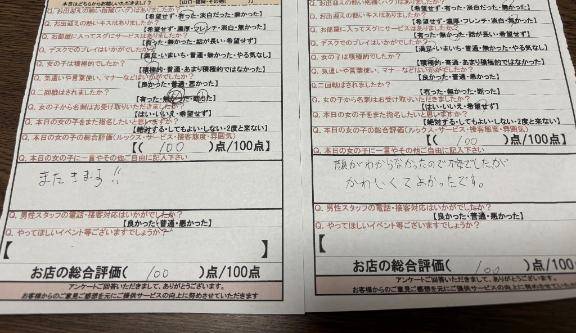 Q. お部屋に入ってスグにサービスはありましたか?
Q. デスクでのプレイはいかがでしたか?
【満足・いまいち・普通・無かった・やる気なし】
Q. 女の子は積極的でしたか?
【積極的・普通・あまり積極的ではなかった】
Q. 気遣いや言葉使い、マナーなどはいかがでしたか?
【良かった・普通・悪かった】
Q. 二回戦はされましたか?
【有った・無かった・断った】
Q. 女の子から名刺はお受け取りいただきましたか?
【はい・いいえ・希望せず】
Q. 本日の女の子をまた指名したいと思いますか?
【絶対する・してもよい・しない・2度と来ない】
Q. 本日の女の子の総合評価(ルックス・サービス・接客態度・雰囲気)
【( 100 )点/100点】
Q. 本日の女の子に一言やその他ご自由に記入下さい
またきます!!
Q. 男性スタッフの電話・接客対応はいかがでしたか?
【良かった・普通・悪かった】
Q. やってほしいイベント等ございますでしょうか?
【 】
お店の総合評価( 100 )点/100点
アンケートご回答いただきまして、ありがとうございます。
お客様からのご意見ご感想を元にご提供サービスの向上に努めさせていただきます
【希望せず・有った・来店だった・無かった】
【希望せず・濃厚・フレンチ・来店・無かった】
Q. お部屋に入ってスグにサービスはありましたか?
【有った・無かった・話が長い・希望せず】
Q. デスクでのプレイはいかがでしたか?
【満足・いまいち・普通・無かった・やる気なし】
Q. 女の子は積極的でしたか?
【積極的・普通・あまり積極的ではなかった】
Q. 気遣いや言葉使い、マナーなどはいかがでしたか?
【良かった・普通・悪かった】
Q. 二回戦はされましたか?
【有った・無かった・断った】
Q. 女の子から名刺はお受け取りいただきましたか?
【はい・いいえ・希望せず】
Q. 本日の女の子をまた指名したいと思いますか?
【絶対する・してもよい・しない・2度と来ない】
Q. 本日の女の子の総合評価(ルックス・サービス・接客態度・雰囲気)
【( 100 )点/100点】
Q. 本日の女の子に一言やその他ご自由に記入下さい
顔がわからなかったので不安でしたが
かわいくてよかったです。
Q. 男性スタッフの電話・接客対応はいかがでしたか?
【良かった・普通・悪かった】
Q. やってほしいイベント等ございますでしょうか?
お店の総合評価( 100 )点/100点
アンケートご回答いただきまして、ありがとうございます。
お客様からのご意見ご感想を元にご提供サービスの向上に努めさせていただきます